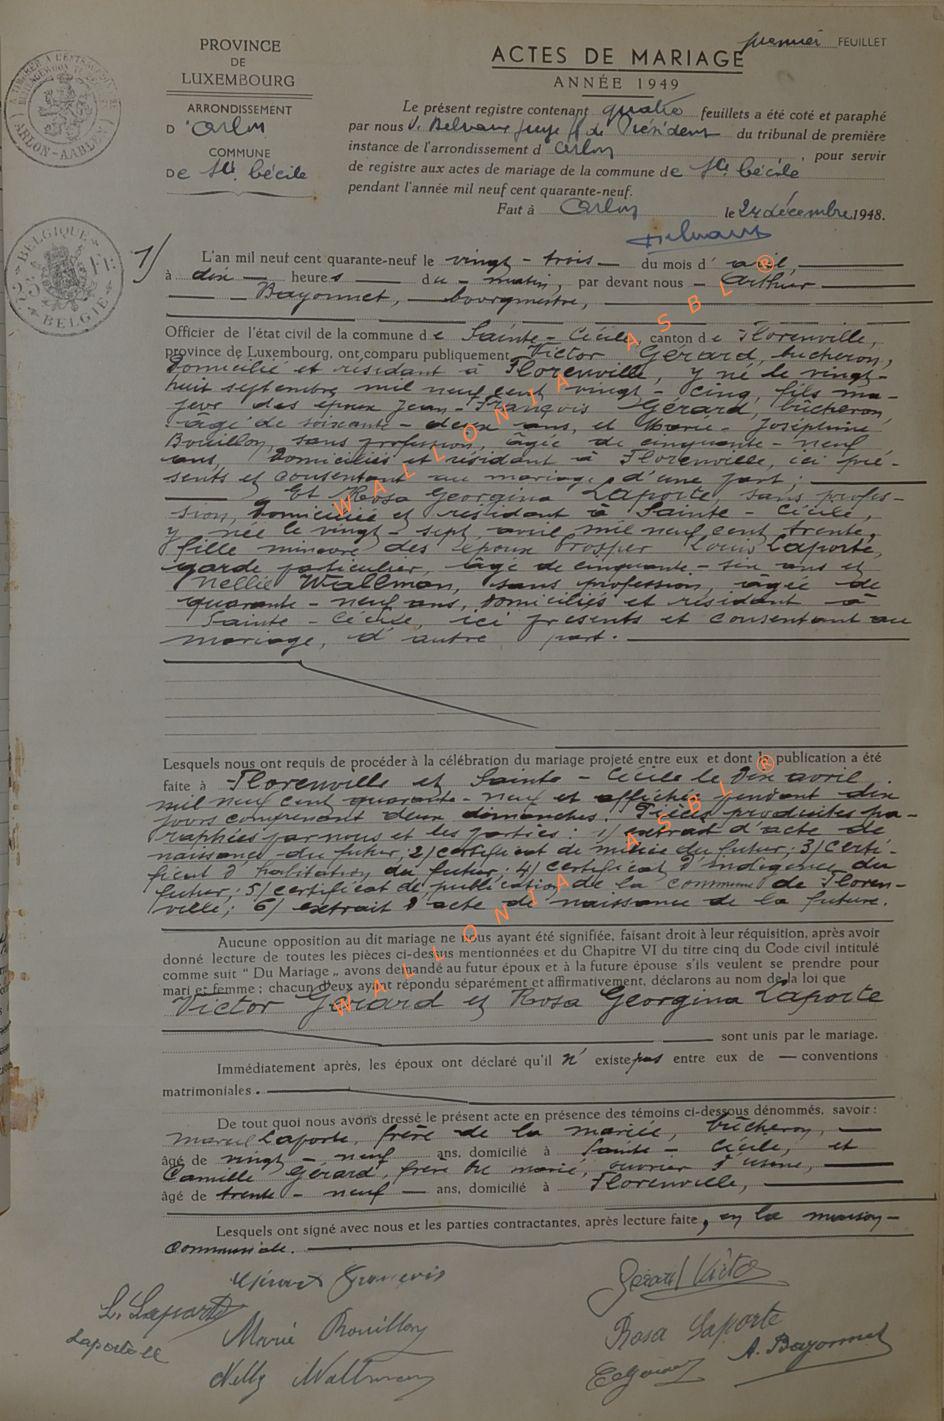 premier FEUILLET
PROVINCE
DE
LUXEMBOURG
ARRONDISSEMENT
D'Arlon
COMMUNE
DE Ste Cécile
ACTES DE MARIAGE
ANNÉE 1949
Le présent registre contenant quatre feuillets a été coté et paraphé
par nous Juge ff de Président du tribunal de première
instance de l'arrondissement d'Arlon, pour servir
de registre aux actes de mariage de la commune de Ste Cécile
pendant l'année mil neuf cent quarante-neuf.
Fait à Arlon le 24 décembre 1948.
ARLON-AARLEN
BELGIQUE
BELGIE
1/ L'an mil neuf cent quarante-neuf le vingt-trois du mois d'avril,
à dix heures du matin, par devant nous Arthur
Bayonnet, bourgmestre,
Officier de l'état civil de la commune de Sainte-Cécile, canton de Florenville,
province de Luxembourg, ont comparu publiquement Victor Gérard, bûcheron,
domicilié et résidant à Florenville, y né le vingt-
huit septembre mil neuf cent vingt-cinq, fils ma-
jeur des époux Jean-François Gérard, bûcheron,
âgé de soixante-deux ans, et Marie-Joséphine
Bouillon, sans profession, âgée de cinquante-neuf
ans, domiciliés et résidant à Florenville, ici pré-
sents et consentant au mariage, d'une part;
Et Rosa Georgina Laporte, sans profes-
sion, domiciliée et résidant à Sainte-Cécile,
y née le vingt-sept avril mil neuf cent trente,
fille mineure des époux Prosper Louis Laporte,
garde particulier, âgé de cinquante-six ans et
Nellie Wallman, sans profession, âgée de
quarante-neuf ans, domiciliés et résidant à
Sainte-Cécile, ici présents et consentant au
mariage, d'autre part.
Lesquels nous ont requis de procéder à la célébration du mariage projeté entre eux et dont la publication a été
faite à Florenville et Sainte-Cécile le dix avril
mil neuf cent quarante-neuf et affichée pendant dix
jours comprenant deux dimanches. Pièces produites pa-
raphées par nous et les parties: 1/ extrait d'acte de
naissance du futur; 2/ certificat de milice du futur; 3/ certi-
ficat d'habitation du futur; 4/ certificat d'indigence du
futur; 5/ certificat de publication de la commune de Floren-
ville; 6/ extrait d'acte de naissance de la future.
Aucune opposition au dit mariage ne nous ayant été signifiée, faisant droit à leur réquisition, après avoir
donné lecture de toutes les pièces ci-dessus mentionnées et du Chapitre VI du titre cinq du Code civil intitulé
comme suit " Du Mariage „ avons demandé au futur époux et à la future épouse s'ils veulent se prendre pour
mari et femme ; chacun d'eux ayant répondu séparément et affirmativement, déclarons au nom de la loi que
Victor Gérard et Rosa Georgina Laporte
sont unis par le mariage.
Immédiatement après, les époux ont déclaré qu'il n'existe pas entre eux de conventions
matrimoniales.
De tout quoi nous avons dressé le présent acte en présence des témoins ci-dessous dénommés, savoir :
Marcel Laporte, frère de la mariée, bûcheron,
âgé de vingt-neuf ans, domicilié à Sainte-Cécile, et
Camille Gérard, frère du marié, ouvrier d'usine,
âgé de trente-neuf ans, domicilié à Florenville,
Lesquels ont signé avec nous et les parties contractantes, après lecture faite, en la maison-
communale.
Gérard François Gérard Victor
L. Laporte
Marie Bouillon Rosa Laporte
Laporte M A. Bayonnet
Nelly Wallman
WALLONIA ASBL®
WALLONIA ASBL®